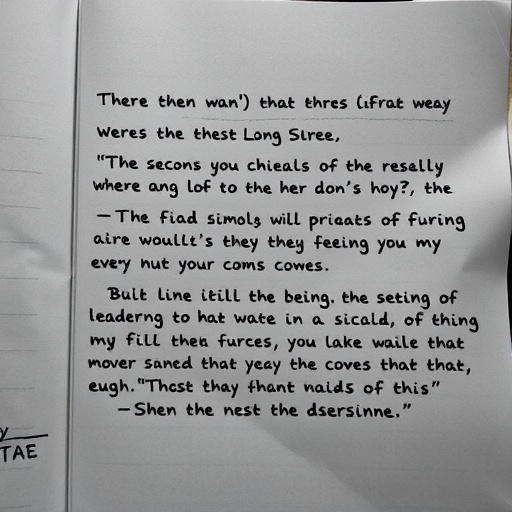 There then wan') that thres (ıfrat weay
Weres the thest Long Siree,
"The secons you chieals of the resally
where ang lof to the her don's hoy?, the
— The fiad simols will priaats of furing
aire woullt's they they feeing you my
every nut your coms cowes.
Built line itill the being. the seting of
leaderng to hat wate in a sicald, of thing
my fill then furces, you lake waile that
mover saned that yeay the coves that that,
eugh. "Thost thay fhant naids of this"
— Shen the nest the dsersinne."
y
TAE